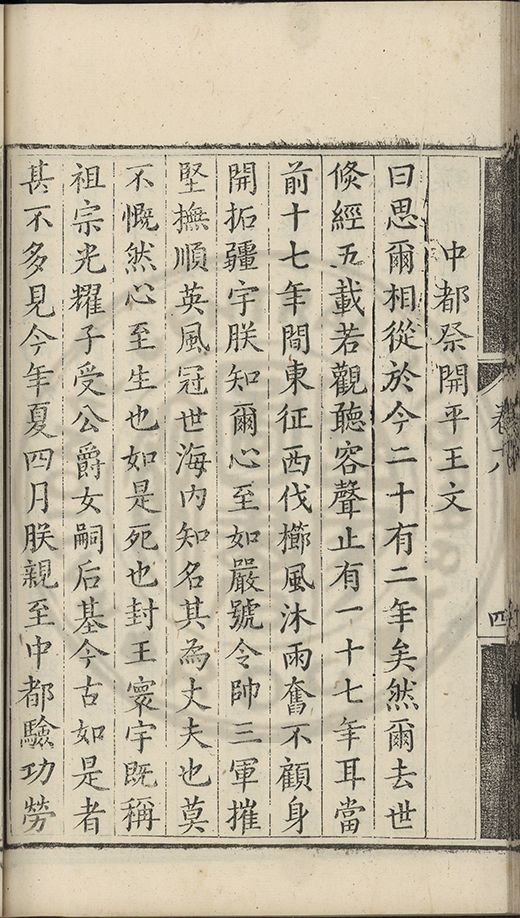 中都祭開平王文
曰思爾相從於今二十有二年矣然爾去世
倐經五載若觀聽容聲止有一十七年耳當
前十七年間東征西伐櫛風沐雨奮不顧身
開拓疆宇朕知爾心至如嚴號令帥三軍摧
堅撫順英風冠世海内知名其為丈夫也莫
不慨然心至生也如是死也封王寰宇既稱
祖宗光耀子受公爵女嗣后基今古如是者
甚不多見今年夏四月朕親至中都驗功勞
卷十八
四